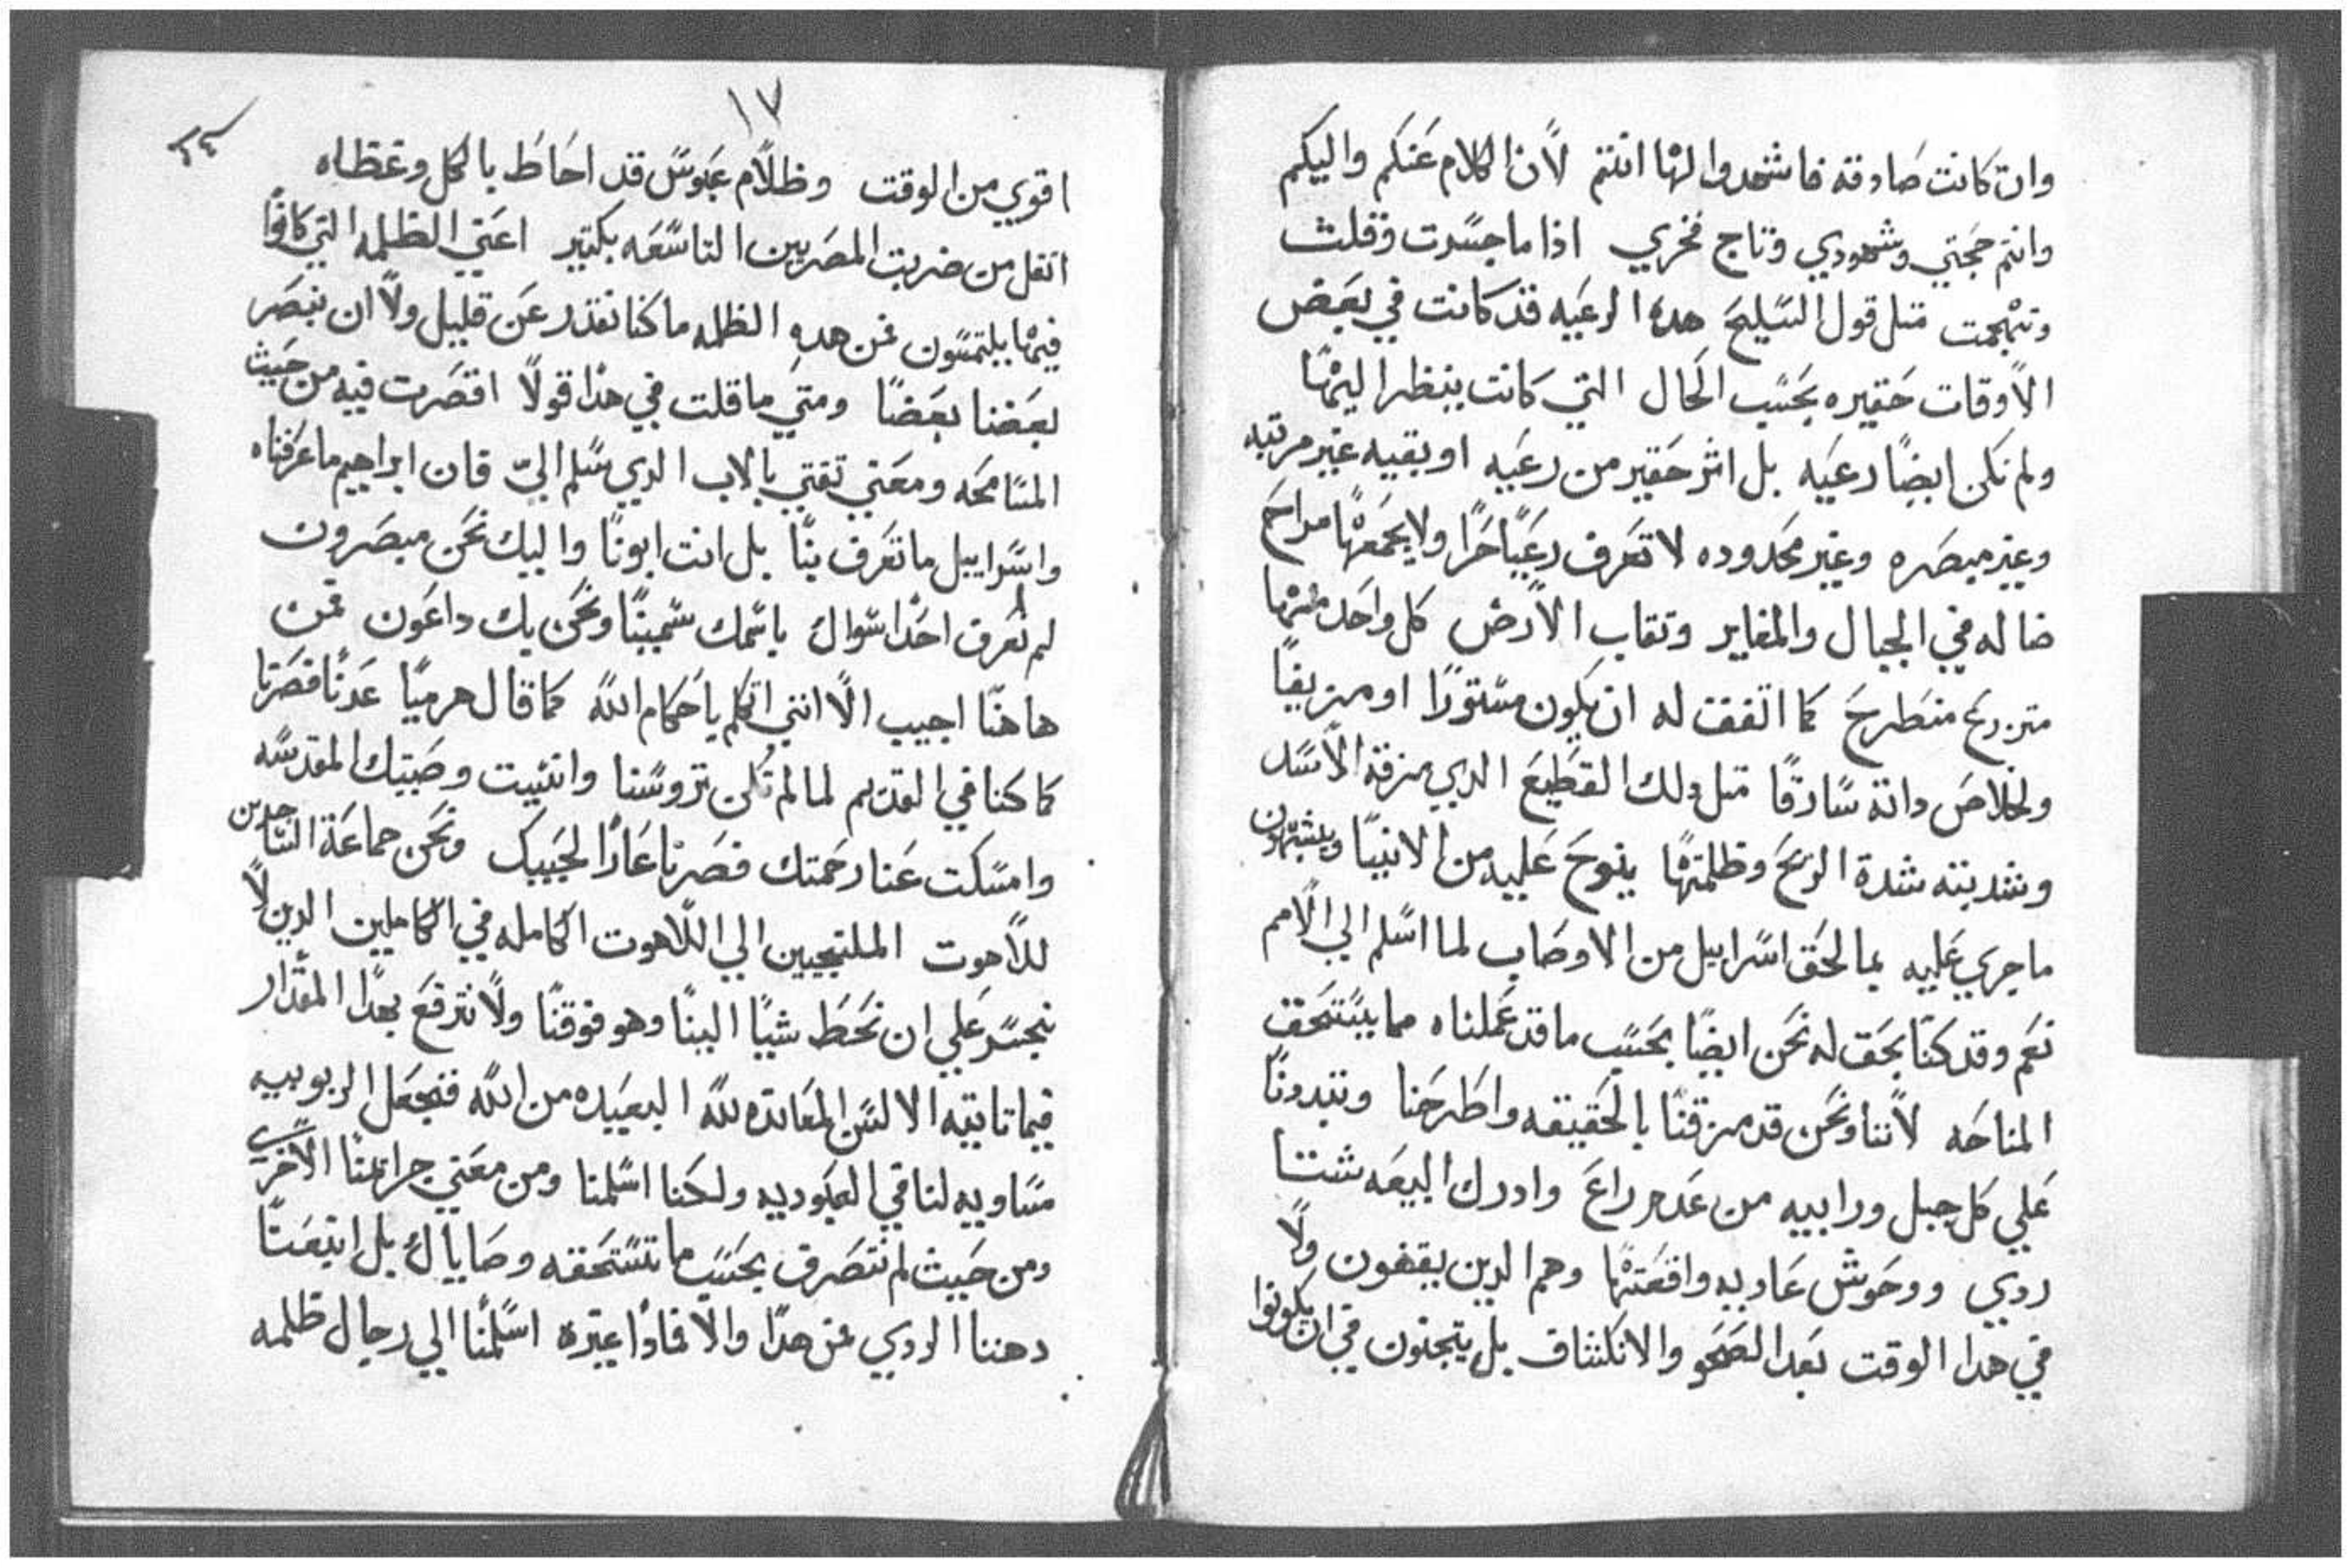 وان كانت صادقه فاشهدوا لها انتم لان الكلام عنكم واليكم
وانتم حجتي وشهودي وتاج فخري اذا ما جسرت وقلت
وتهجمت متل قول السليح هده الرعيه قد كانت في بعض
الاوقات حقيره بحسب الحال التي كانت ينظر اليها
ولم تكن ايضا رعيه بل اثر حقير من رعيه او بقيه غير مرتبه
وغير مبصره وغير محدوده لا تعرف رعيا حرا ولا يجمعها مراح
ضاله في الجبال والمغاير وتقاب الارض كل واحد منها
متزرع منطرح كما اتفقت له ان يكون مستورا او مزيفا
ولخلاص داته سارقا متل دلك القطيع الدي مزقه الاسد
وشدبته شدة الريح وظلمتها ينوح عليه من الانبيا ويشبهون
ما جري عليه بما لحق اسراييل من الاوصاب لما اسلم الي الامم
نعم وقد كنا بحق له نحن ايضا بحسب ما قد عملناه مما يستحق
المناحه لاننا ونحن قد مزقنا بالحقيقه واطرحنا وتبددنا
علي كل جبل ورابيه من عدم راع وادرك البيعه شتتا
ردي ووحوش عاديه واقعتها وهم الدين يقفون ولا
في هدا الوقت بعد الصحو والانكشاف بل يتجنون في ان يكونوا
١٧
٢٤
اقوي من الوقت وظلام عبوس قد احاط بالكل وغطاه
اتقل من ضربت المصريين التاسعه بكتير اعني الظلمه التي كانوا
فيها يلتمسون فمن هده الظلمه ما كنا نقدر عن قليل ولا ان نبصر
بعضنا بعضا ومتي ما قلت في هدا قولا اقصرت فيه من حيث
المسامحه ومعني تقتي بالاب الدي سلم الي فان ابراهيم ما عرفناه
واسراييل ما تعرف بنا بل انت ابونا واليك نحن مبصرون
لم نعرف احدا سواك باسمك سمينا ونحن بك داعون فمن
هاهنا اجيب الا انني اتكلم باحكام الله كما قال هرميا عدنا فصرنا
كما كنا في القديم لما لم تكن تروسنا وانتيت وصيتك المقدسه
وامسكت عنا رحمتك فصرنا عارا لحبيبك ونحن جماعة الساجدين
للاهوت الملتجيين الي اللاهوت الكامله في الكاملين الدين لا
نجسر علي ان نحط شيا الينا وهو فوقنا ولا نترفع بهدا المقدار
فيما تاتيه الالسن المعانده لله البعيده من الله فتجعل الربوبيه
مساويه لنا في العبوديه ولكنا اسلمنا ومن معني جراتنا الاخري
ومن حيث لم نتصرف بحسب ما تستحقه وصاياك بل اتبعنا
دهننا الردي فمن هدا والا فمادا عيره اسلمنا الي رجال ظلمه